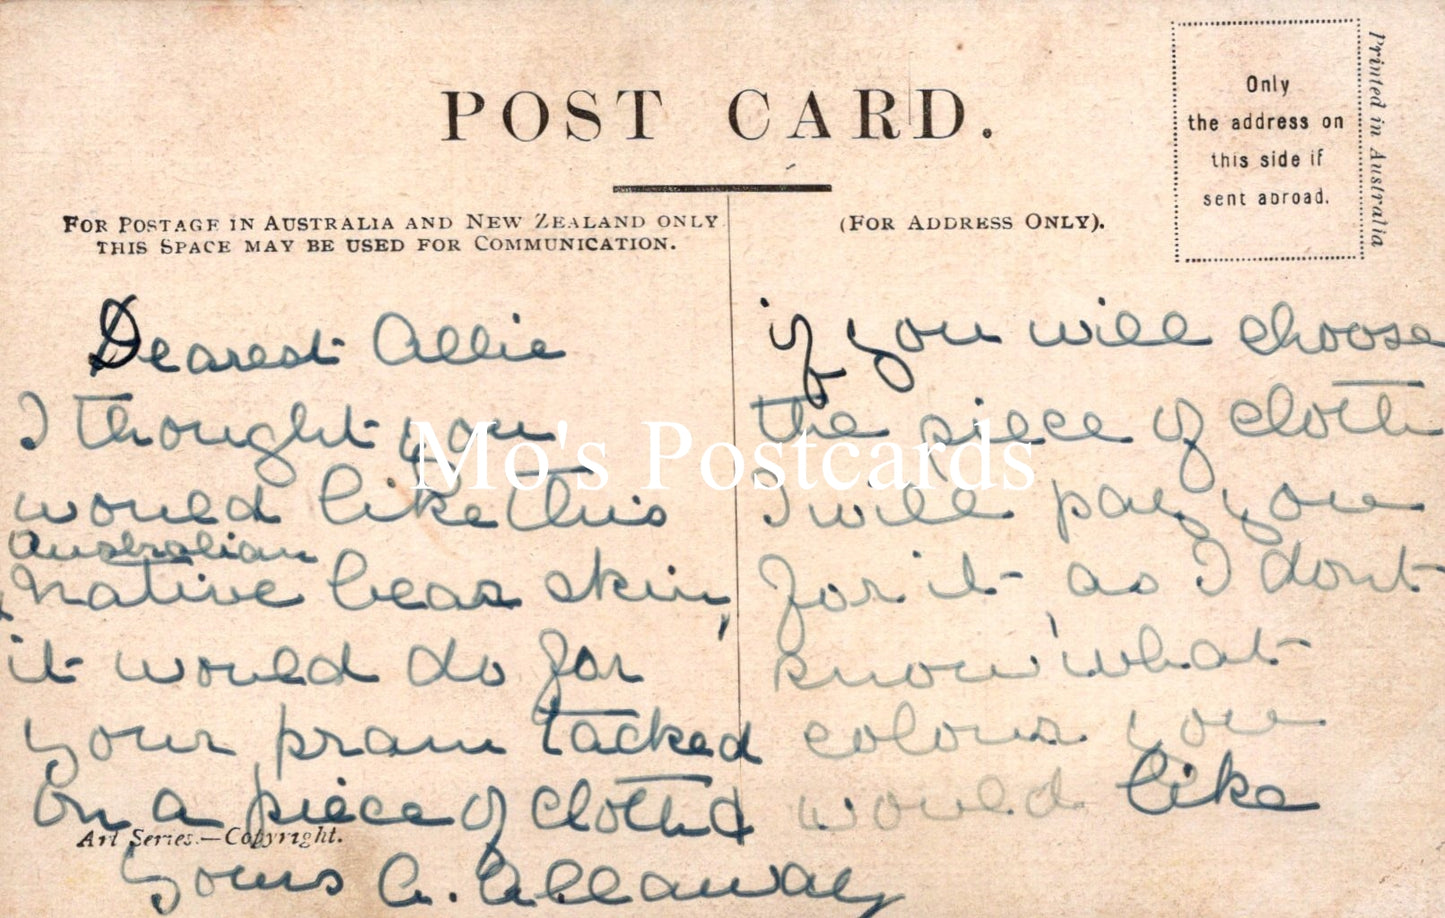 POST CARD.
FOR POSTAGE IN AUSTRALIA AND NEW ZEALAND ONLY
THIS SPACE MAY BE USED FOR COMMUNICATION.
(FOR ADDRESS ONLY).
Only
the address on
this side if
sent abroad.
Printed in Australia
Dearest Allie
I thought you
would like this
Australian
native bear skin,
it would do for
your pram tacked
on a piece of cloth &
if you will choose
the piece of cloth
I will pay you
for it, as I dont
know what
colour you
would like
Yours A. Allaway
Art Series.—Copyright.
Mo's Postcards